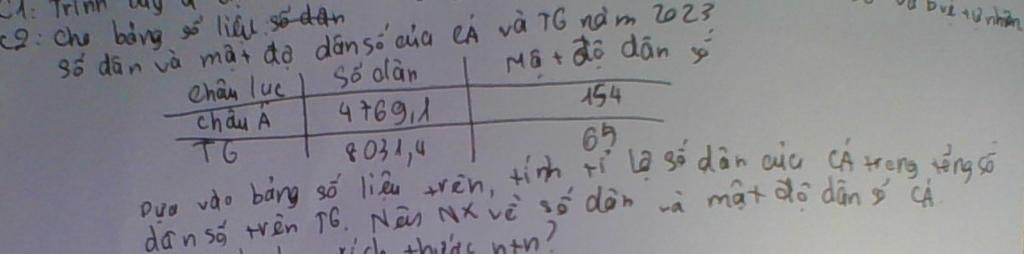 C1: Trình
C2: Cho bảng số liệu số dân
số dân và mật độ dân số của CÁ và TG năm 2023
Châu lục | Số dân | Mật độ dân số
Châu Á | 4769,1 | 154
TG | 8031,4 | 65
Dựa vào bảng số liệu trên, tính tỉ lệ số dân của CÁ trong tổng số
dân số trên TG. Nêu NX về số dân và mật độ dân số CÁ.
thước ntn?